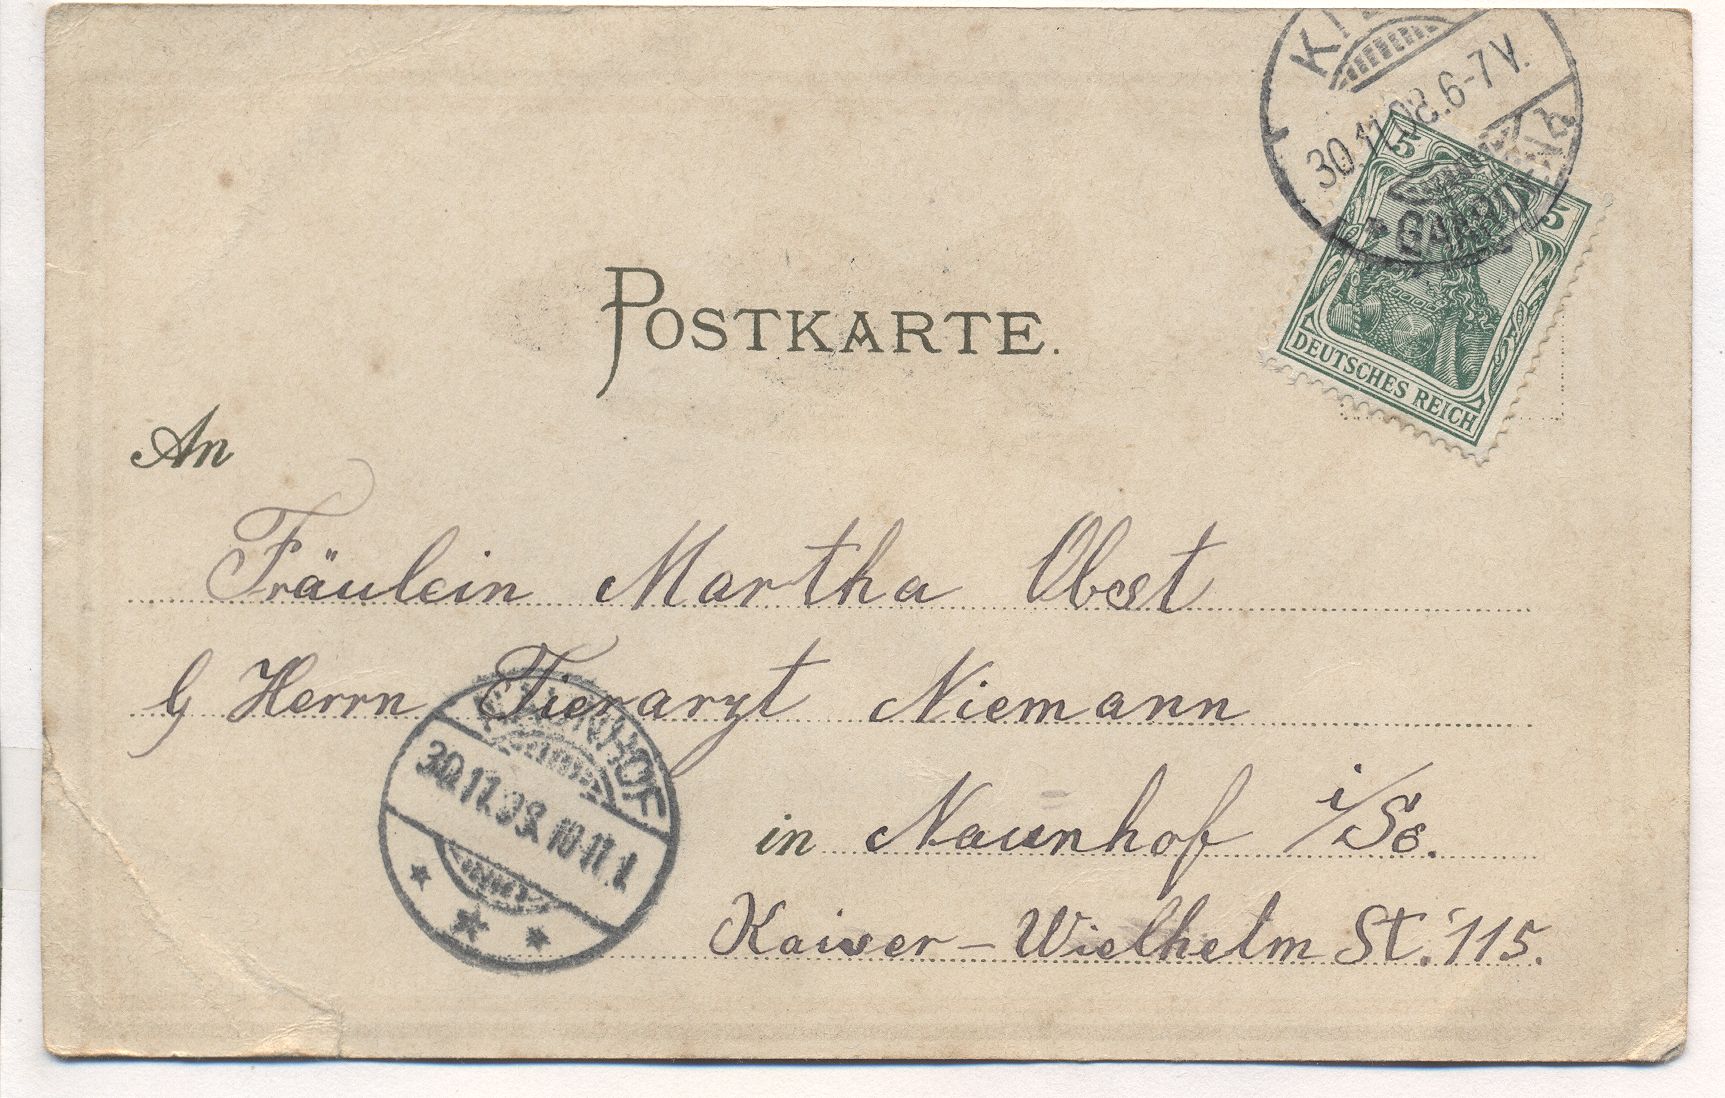 KIEL
30.11.08.6-7V.
* GAARDEN
5 5
DEUTSCHES REICH
POSTKARTE.
An
Fräulein Martha Obst
b/ Herrn Tierarzt Niemann
in Naunhof i/Sa.
Kaiser-Wielhelm St. 115.
NAUNHOF
30.11.08. 10-11.V.